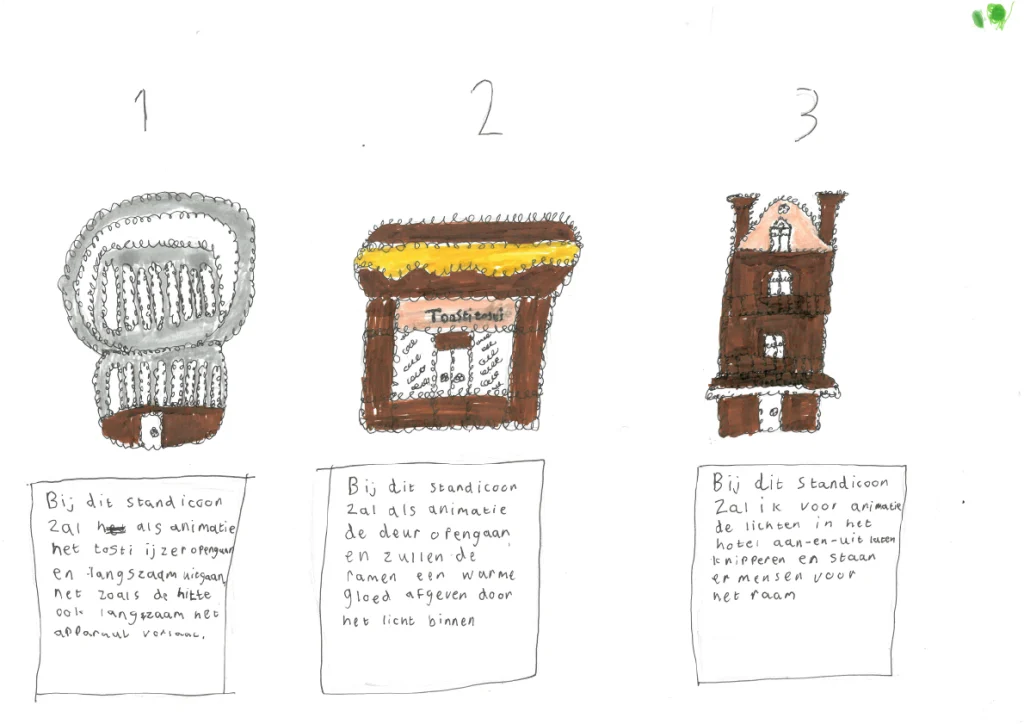 1
2
3
Toastitosti
Bij dit standicoon
zal als animatie
het tosti ijzer opengaan
en langszaam uitgaan,
net zoals de hitte
ook langszaam het
apparaat verlaat.
Bij dit standicoon
zal als animatie
de deur opengaan
en zullen de
ramen een warme
gloed afgeven door
het licht binnen
Bij dit standicoon
zal ik voor animatie
de lichten in het
hotel aan-en-uit laten
knipperen en staan
er mensen voor
het raam